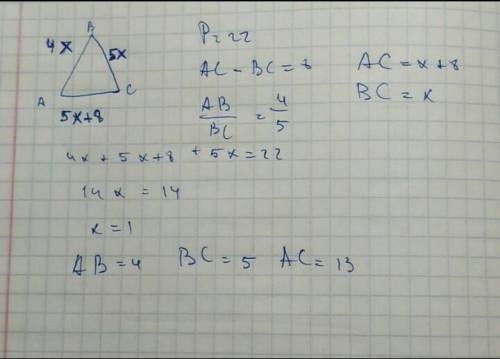 B
4x 5x
A C
5x+8
P=22
AC - BC = 8
AC = x+8
AB/BC = 4/5
BC = x
4x + 5x+8 + 5x = 22
14x = 14
x = 1
AB = 4 BC = 5 AC = 13